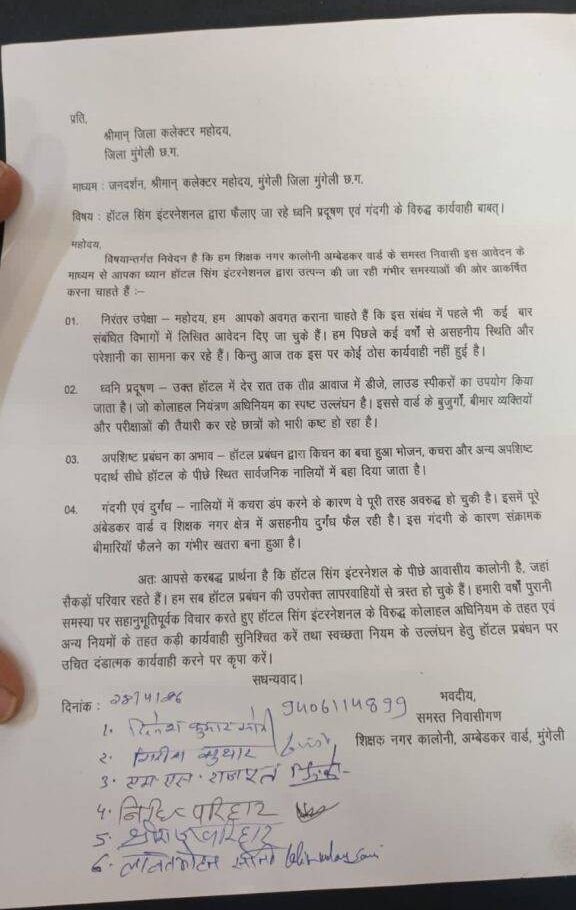 प्रति,
श्रीमान् जिला कलेक्टर महोदय,
जिला मुंगेली छ.ग.
माध्यम : जनदर्शन, श्रीमान् कलेक्टर महोदय, मुंगेली जिला मुंगेली छ.ग.
विषय : हॉटल सिंग इंटरनेशनल द्वारा फैलाए जा रहे ध्वनि प्रदूषण एवं गंदगी के विरुद्ध कार्यवाही बाबत्।
महोदय,
विषयान्तर्गत निवेदन है कि हम शिक्षक नगर कालोनी अम्बेडकर वार्ड के समस्त निवासी इस आवेदन के
माध्यम से आपका ध्यान हॉटल सिंग इंटरनेशनल द्वारा उत्पन्न की जा रही गंभीर समस्याओं की ओर आकर्षित
करना चाहते हैं :–
01. निरंतर उपेक्षा – महोदय, हम आपको अवगत कराना चाहते हैं कि इस संबंध में पहले भी कई बार
संबंधित विभागों में लिखित आवेदन दिए जा चुके हैं। हम पिछले कई वर्षो से असहनीय स्थिति और
परेशानी का सामना कर रहे हैं। किन्तु आज तक इस पर कोई ठोस कार्यवाही नहीं हुई है।
02. ध्वनि प्रदूषण – उक्त हॉटल में देर रात तक तीव्र आवाज में डीजे, लाउड स्पीकरों का उपयोग किया
जाता है। जो कोलाहल नियंत्रण अधिनियम का स्पष्ट उल्लंघन है। इससे वार्ड के बुजुर्गो, बीमार व्यक्तियों
और परीक्षाओं की तैयारी कर रहे छात्रों को भारी कष्ट हो रहा है।
03. अपशिष्ट प्रबंधन का अभाव – हॉटल प्रबंधन द्वारा किचन का बचा हुआ भोजन, कचरा और अन्य अपशिष्ट
पदार्थ सीधे हॉटल के पीछे स्थित सार्वजनिक नालियों में बहा दिया जाता है।
04. गंदगी एवं दुर्गंध – नालियों में कचरा डंप करने के कारण वे पूरी तरह अवरुद्ध हो चुकी है। इसमें पूरे
अंबेडकर वार्ड व शिक्षक नगर क्षेत्र में असहनीय दुर्गंध फैल रही है। इस गंदगी के कारण संक्रामक
बीमारियाँ फैलने का गंभीर खतरा बना हुआ है।
अतः आपसे करबद्ध प्रार्थना है कि हॉटल सिंग इंटरनेशल के पीछे आवासीय कालोनी है, जहां
सैकड़ों परिवार रहते हैं। हम सब हॉटल प्रबंधन की उपरोक्त लापरवाहियों से त्रस्त हो चुके हैं। हमारी वर्षो पुरानी
समस्या पर सहानुभूतिपूर्वक विचार करते हुए हॉटल सिंग इंटरनेशनल के विरुद्ध कोलाहल अधिनियम के तहत एवं
अन्य नियमों के तहत कड़ी कार्यवाही सुनिश्चित करें तथा स्वच्छता नियम के उल्लंघन हेतु हॉटल प्रबंधन पर
उचित दंडात्मक कार्यवाही करने पर कृपा करें।
सधन्यवाद।
दिनांक : 9406114899 भवदीय,
समस्त निवासीगण
शिक्षक नगर कालोनी, अम्बेडकर वार्ड, मुंगेली
1. दिनेश कुमार
2. गिरीश सुथार
3. एम. एस. राजपूत
4. निधि परिहार
5. परिहार
6. ललितमोहन सोनी